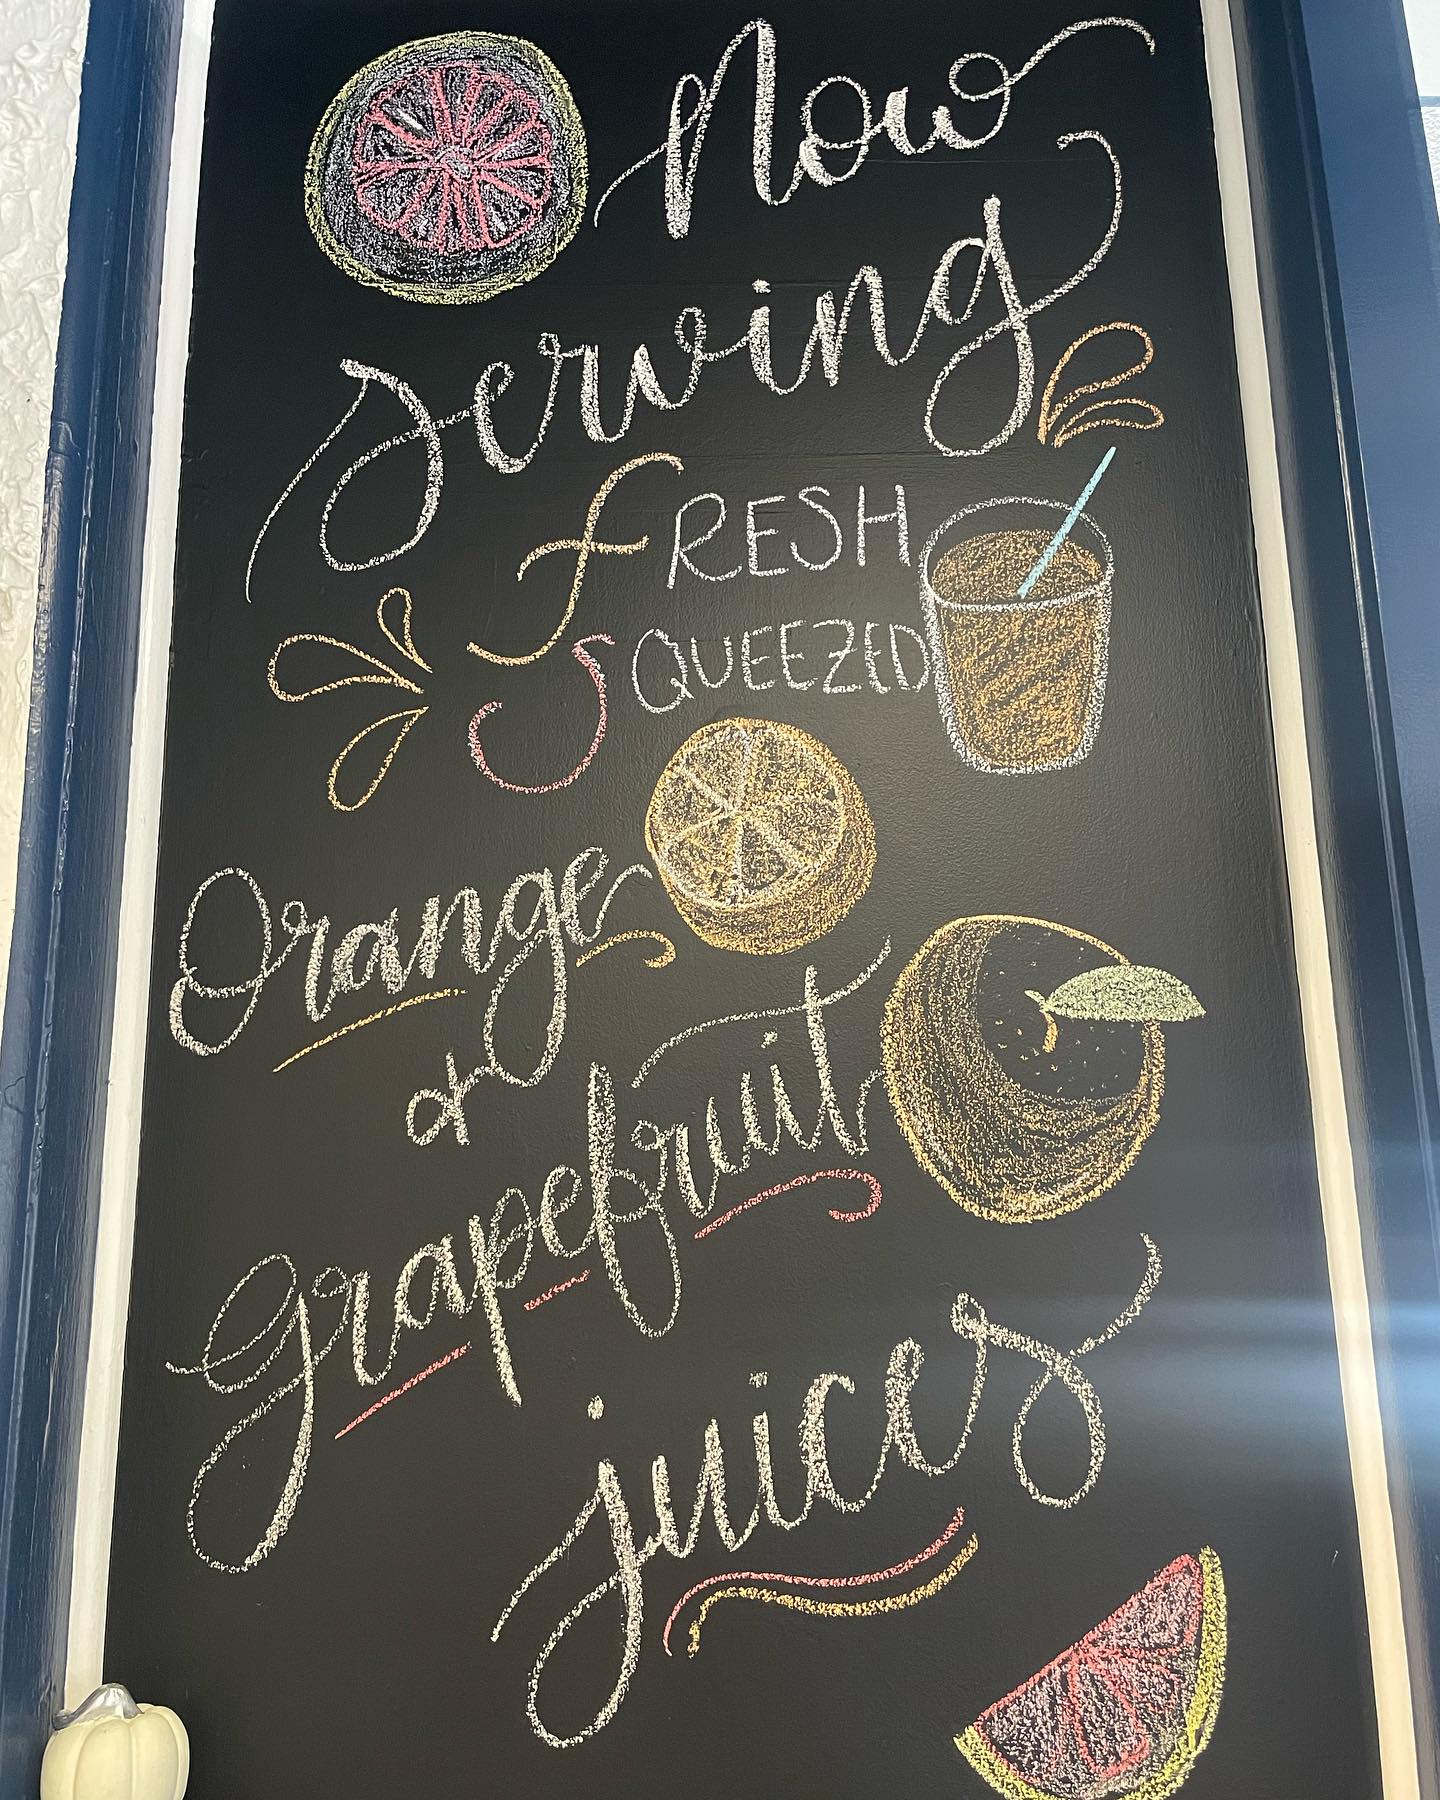 Now
Serving
FRESH
SQUEEZED
Orange
or
Grapefruit
juices